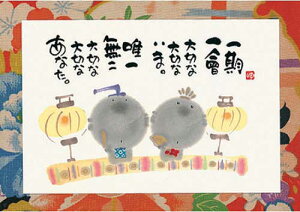 一期
一會
大切な
大切な
いま。
唯一
無二
大切な
大切な
あなた。